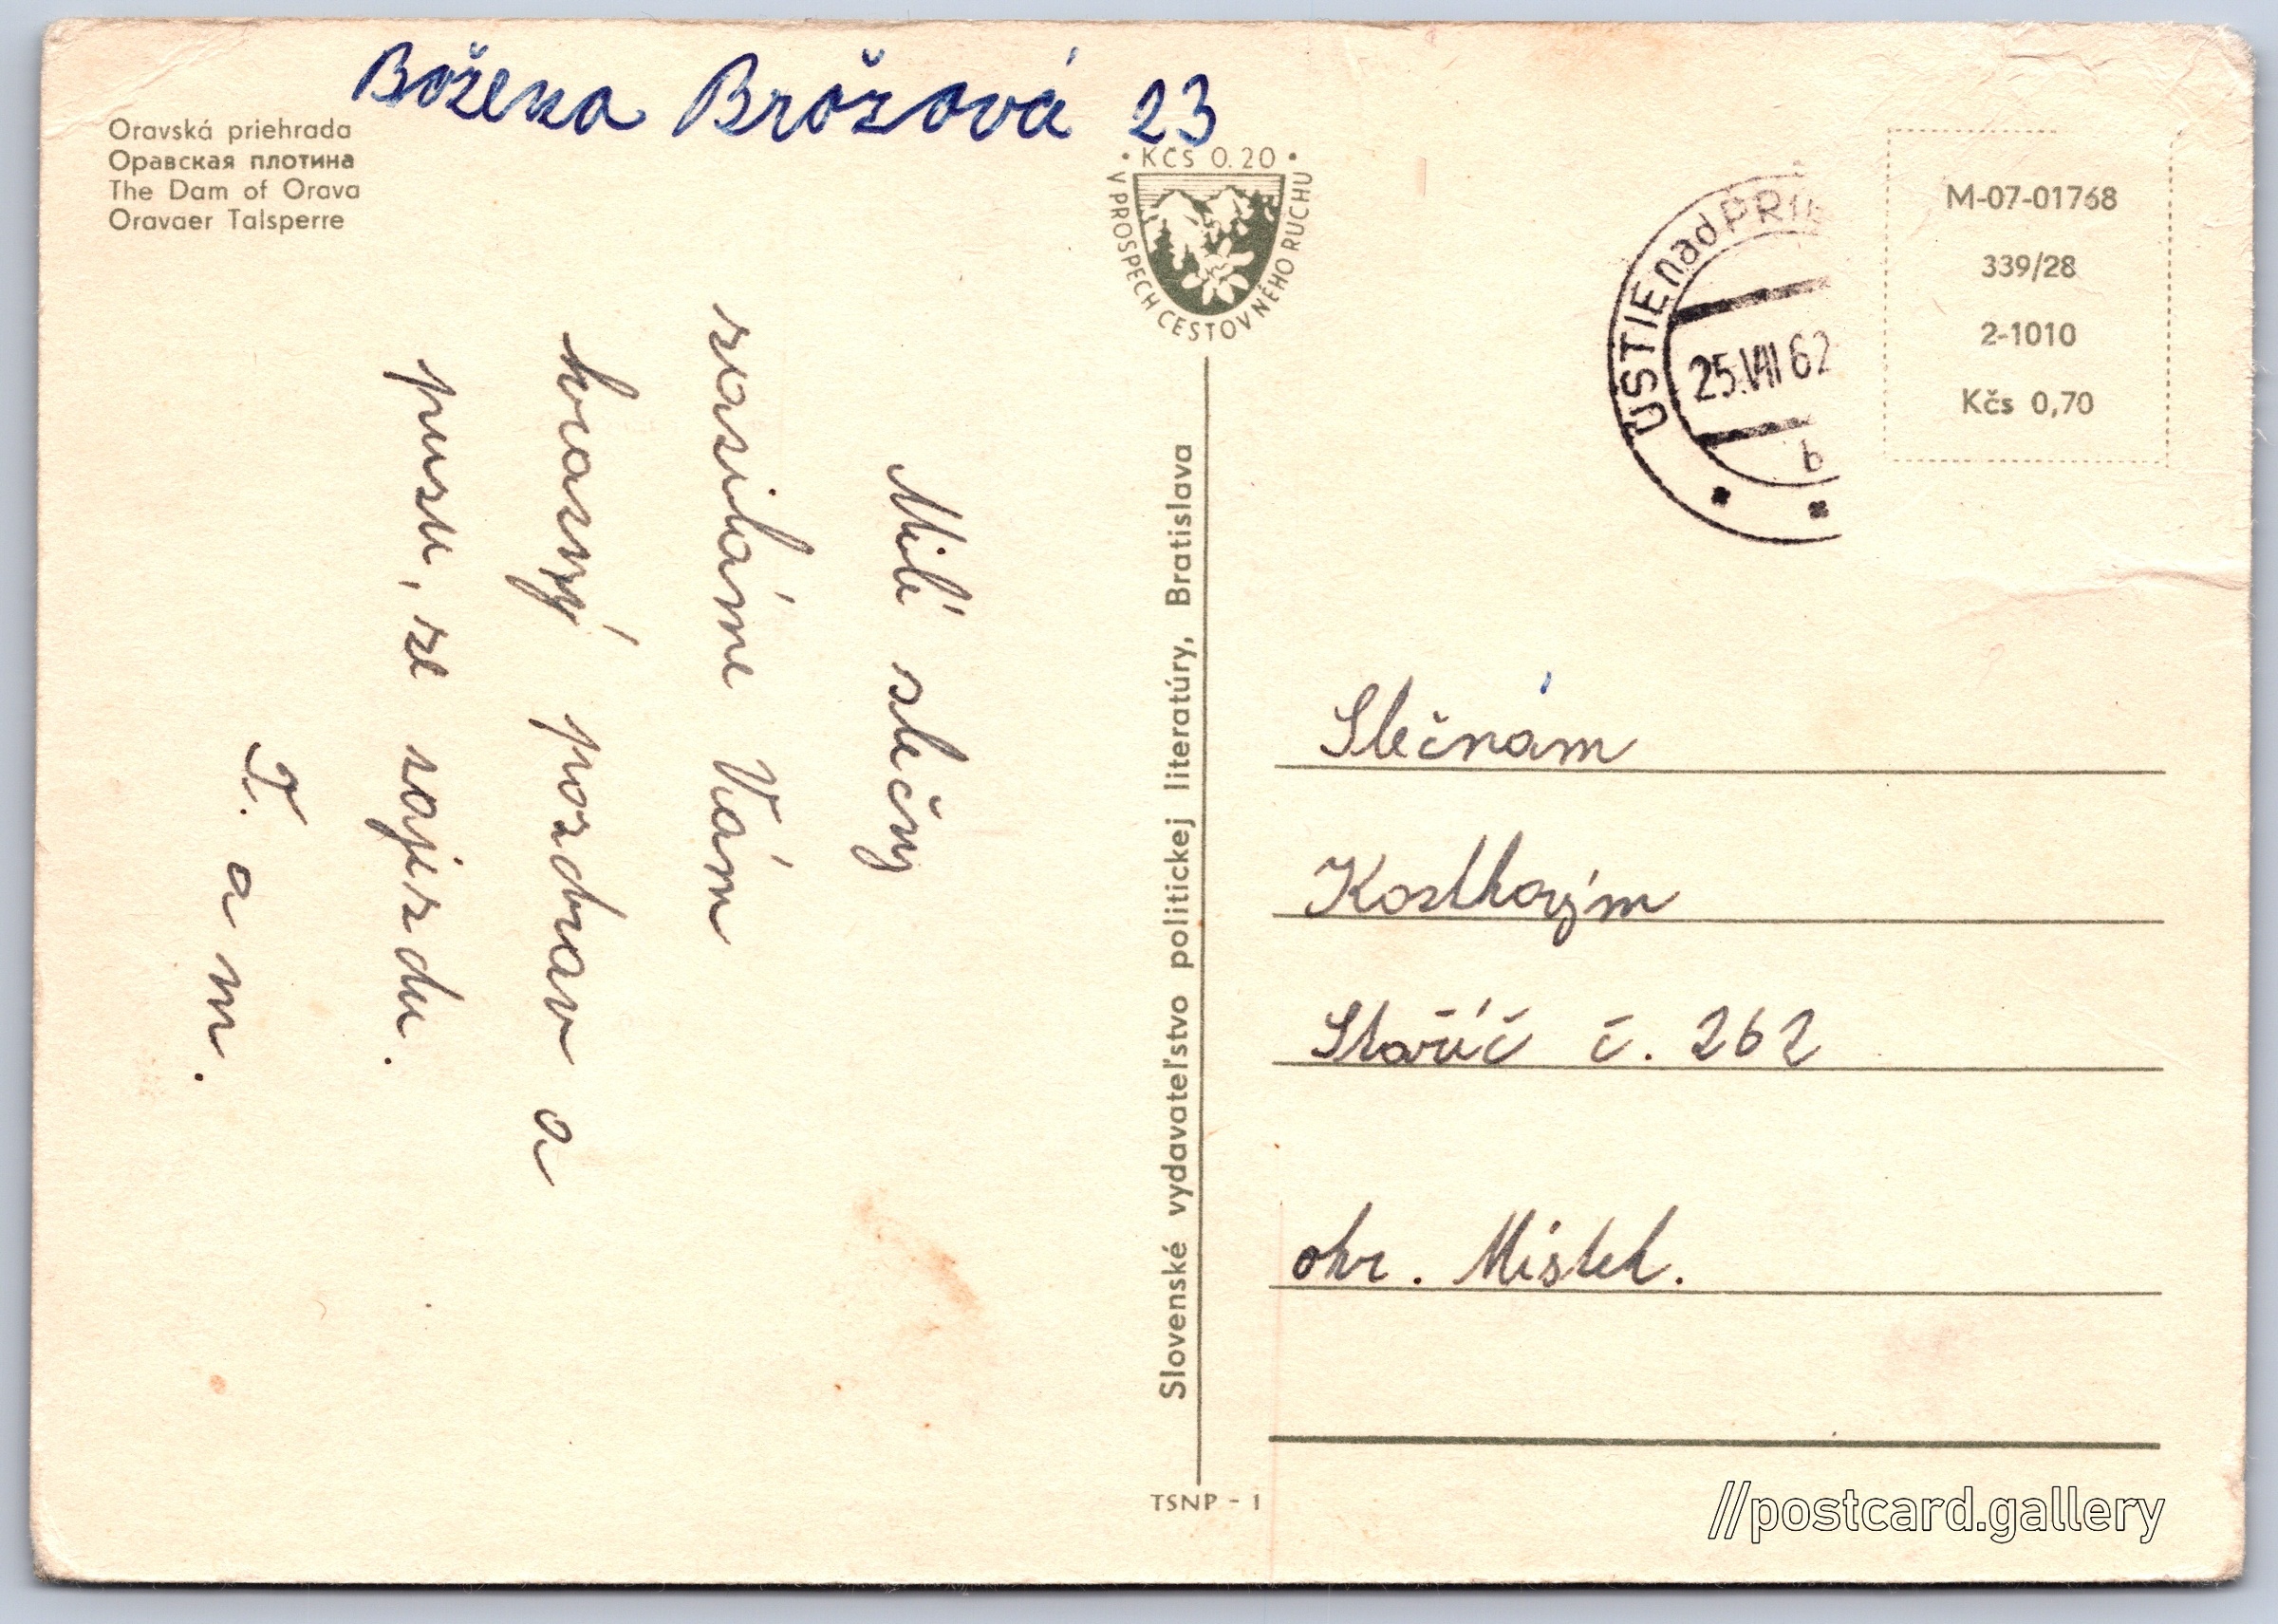 Božena Brožová 23
Oravská priehrada
Оравская плотина
The Dam of Orava
Oravaer Talsperre
• KČS 0.20 •
V PROSPECH CESTOVNÉHO RUCHU
Milé slečny
zasíláme Vám
krásný pozdrav a
pusu, ze zájezdu.
T. a M.
Slovenské vydavateľstvo politickej literatúry, Bratislava
TSNP - 1
USTIE nad PRIE
25.VIII 62
b
M-07-01768
339/28
2-1010
Kčs 0,70
Slečnám
Kostkovým
Staříč č. 262
okr. Místek.
//postcard.gallery